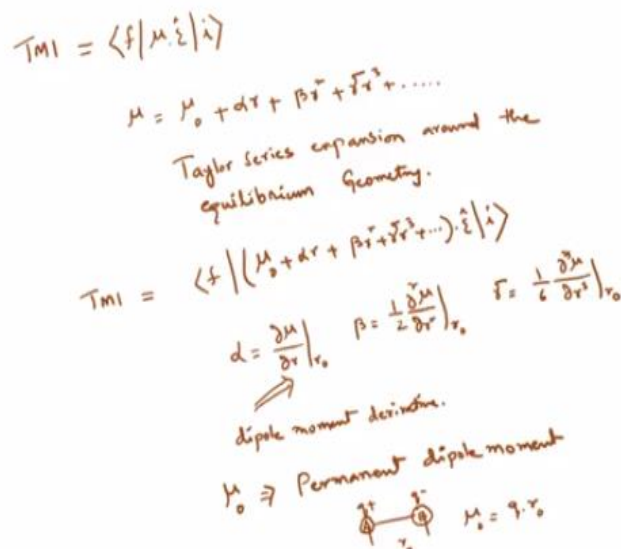 TMI = ⟨f|μ.ε̂|i⟩
μ = μ₀ + αr + βr² + γr³ + .....
Taylor series expansion around the
equilibrium Geometry.
TMI = ⟨f|(μ₀ + αr + βr² + γr³ + ...).ε̂|i⟩
α = ∂μ/∂r|r₀ β = 1/2 ∂²μ/∂r²|r₀ γ = 1/6 ∂³μ/∂r³|r₀
dipole moment derivative.
μ₀ ⇒ Permanent dipole moment
q+ q-
A B μ₀ = q.r₀
r₀